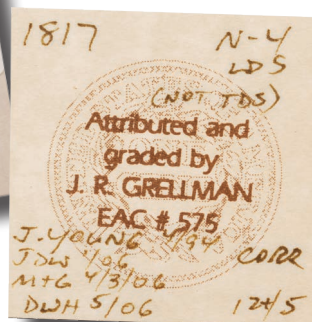 1817 N-4
LDS
(NOT TDS)
Attributed and
graded by
J. R. GRELLMAN
EAC # 575
J. YOUNG 1/94
JDW 1/06 CORR
M+G 4/3/06
DWH 5/06 12+/5